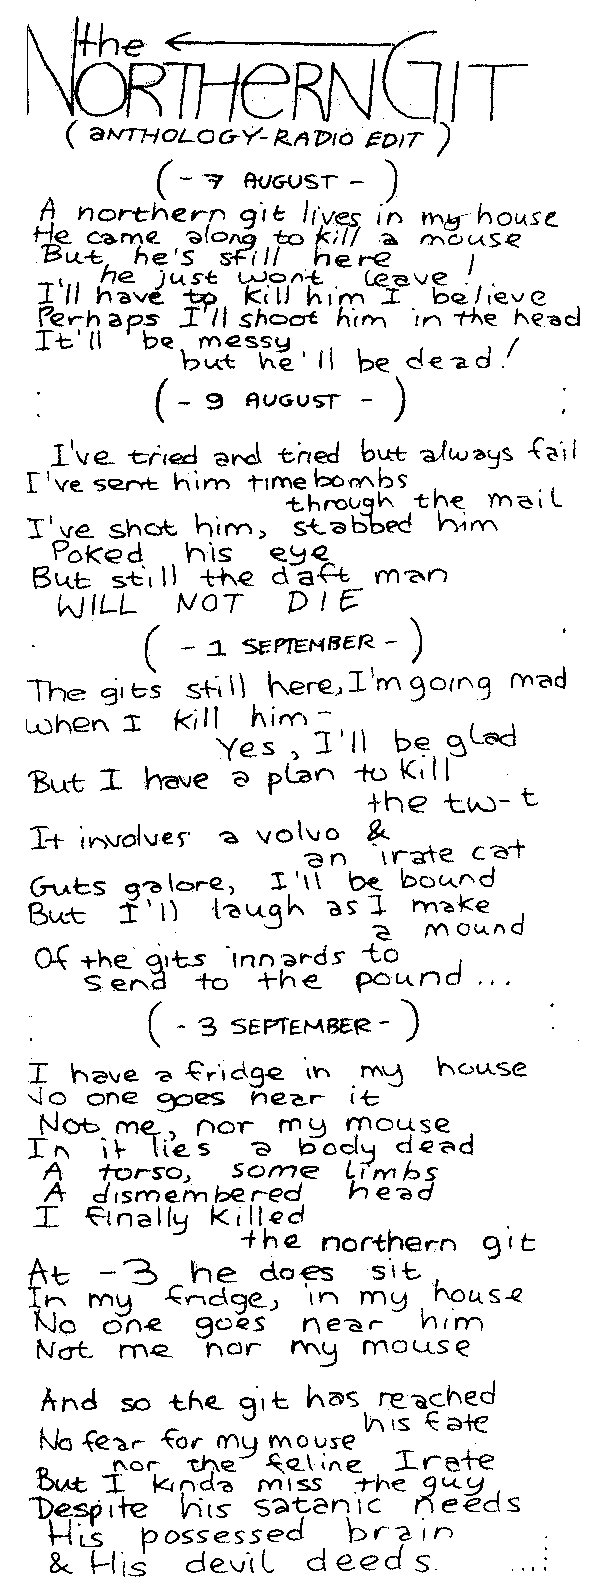 the
NORTHERN GIT
(ANTHOLOGY-RADIO EDIT)
(- 7 AUGUST -)
A northern git lives in my house
He came along to kill a mouse
But he's still here
he just wont leave!
I'll have to kill him I believe
Perhaps I'll shoot him in the head
It'll be messy
but he'll be dead!
(- 9 AUGUST -)
I've tried and tried but always fail
I've sent him timebombs
through the mail
I've shot him, stabbed him
Poked his eye
But still the daft man
WILL NOT DIE
(- 1 SEPTEMBER -)
The gits still here, I'm going mad
when I kill him -
Yes, I'll be glad
But I have a plan to kill
the tw-t
It involves a volvo &
an irate cat
Guts galore, I'll be bound
But I'll laugh as I make
a mound
Of the gits innards to
send to the pound...
(- 3 SEPTEMBER -)
I have a fridge in my house
No one goes near it
Not me, nor my mouse
In it lies a body dead
A torso, some limbs
A dismembered head
I finally killed
the northern git
At -3 he does sit
In my fridge, in my house
No one goes near him
Not me nor my mouse
And so the git has reached
his fate
No fear for my mouse
nor the feline Irate
But I kinda miss the guy
Despite his satanic needs
His possessed brain
& His devil deeds.